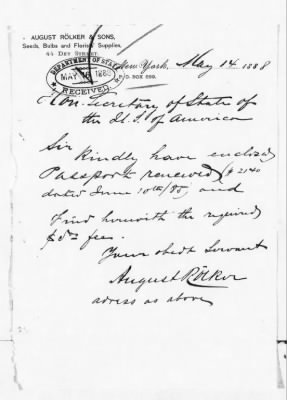 AUGUST RÖLKER & SONS,
Seeds, Bulbs and Florists' Supplies,
44 DEY STREET
P.O. BOX 899.
DEPARTMENT OF STATE
MAY 16 1888
RECEIVED
New York, May 14 1888
Hon. Secretary of State of
the U.S. of America
Sir
Kindly have enclosed
Passport renewed (# 2140
dated June 10th/85) and
Find herewith the required
fee.
Your obedt Servant
August Rölker
adress as above